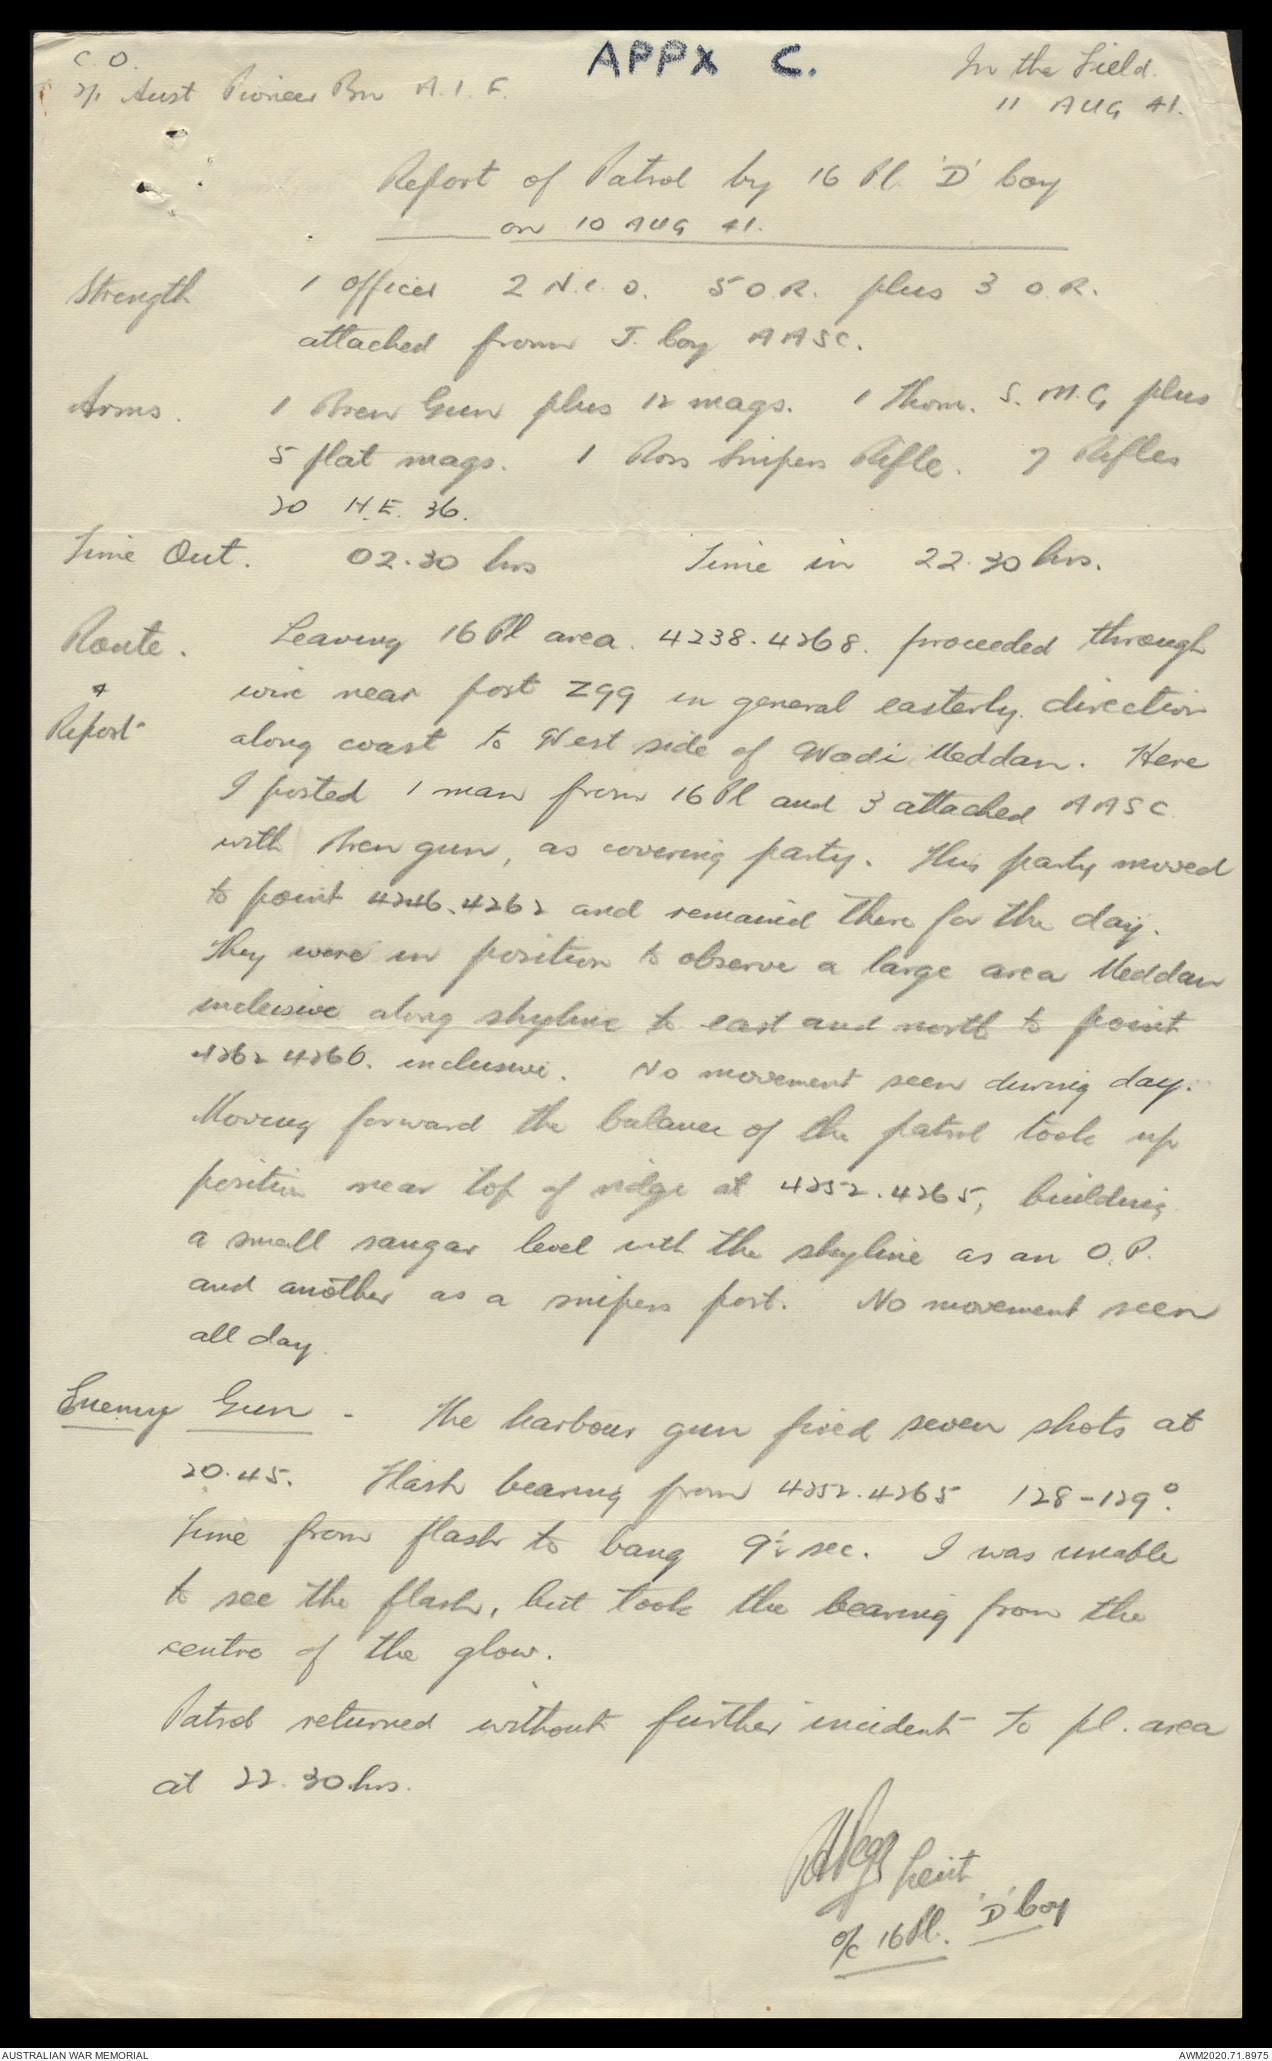 APPX C.
C.O.
2/1 Aust Pioneer Bn A.I.F.
In the Field.
11 AUG 41.
Report of Patrol by 16 Pl. 'D' Coy
on 10 AUG 41.
Strength 1 Officer 2 N.C.O. 5 O.R. plus 3 O.R.
attached from J. Coy AASC.
Arms. 1 Bren Gun plus 12 mags. 1 Thom. S.M.G plus
5 flat mags. 1 Ross Snipers Rifle. 7 Rifles
20 H.E. 36.
Time Out. 02.30 hrs Time in 22.30 hrs.
Route. Leaving 16 Pl area. 4238.4268. proceeded through
& wire near post Z99 in general easterly direction
Report along coast to West side of Wadi Meddan. Here
I posted 1 man from 16 Pl and 3 attached AASC
with Bren gun, as covering party. This party moved
to point 4246.4262 and remained there for the day.
They were in position to observe a large area Meddan
inclusive along skyline to east and north to point
4262 4266. inclusive. No movement seen during day.
Moving forward the balance of the patrol took up
position near top of ridge at 4252.4265, building
a small sangar level with the skyline as an O.P.
and another as a snipers post. No movement seen
all day.
Enemy Gun - The harbour gun fired seven shots at
20.45. Flash bearing from 4252.4265 128-129°.
Time from flash to bang 9½ sec. I was unable
to see the flash, but took the bearing from the
centre of the glow.
Patrol returned without further incident to pl. area
at 22.30 hrs.
Lieut
o/c 16 Pl. 'D' Coy
AUSTRALIAN WAR MEMORIAL
AWM2020.71.8975